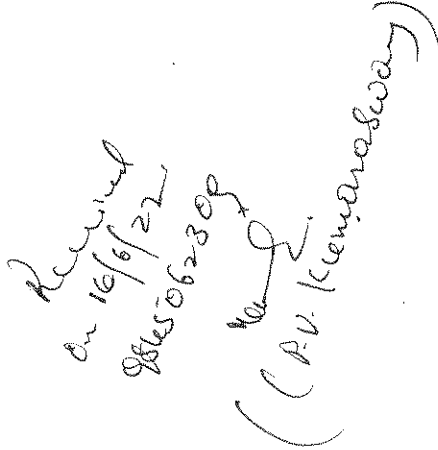 Received
On 16/6/22
9845062309
(P.V. Kumaraswamy)